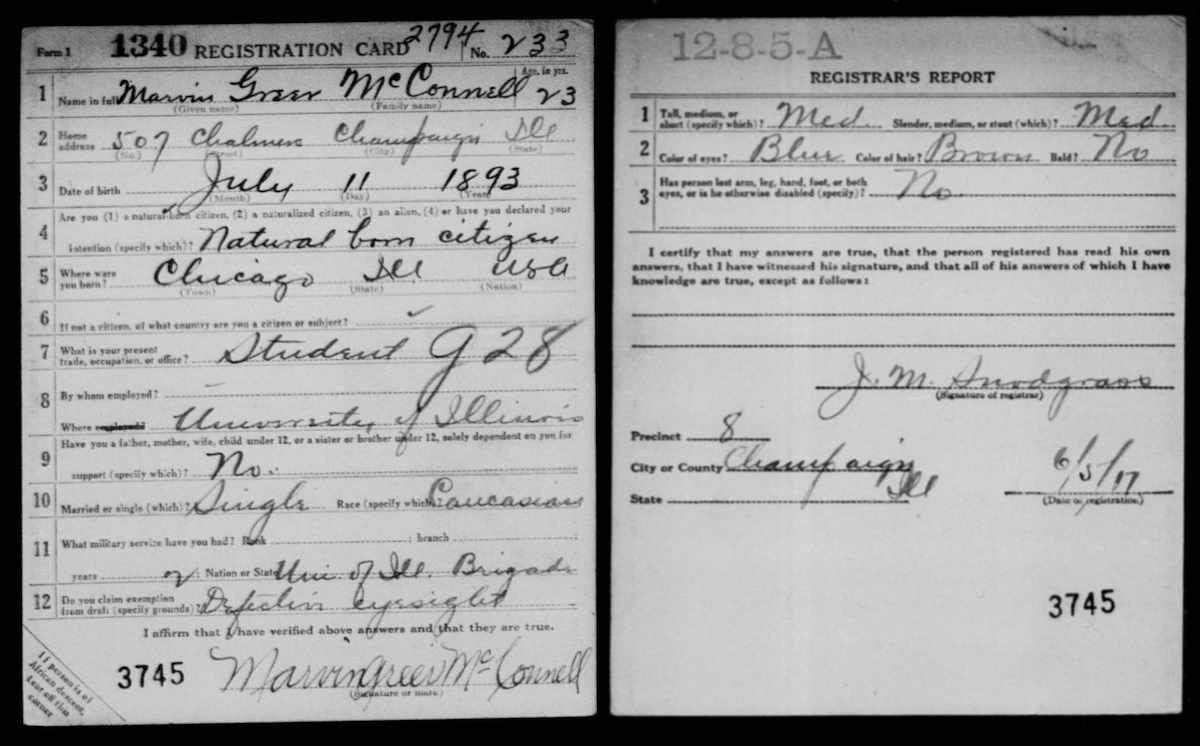 Form 1 1340 REGISTRATION CARD 2794 No. 233
Age, in yrs.
1 Name in full Marvin Greer McConnell 23
(Given name) (Family name)
2 Home address 507 Chalmers Champaign Ill
(No.) (Street) (City) (State)
3 Date of birth July 11 1893
(Month) (Day) (Year)
4 Are you (1) a natural-born citizen, (2) a naturalized citizen, (3) an alien, (4) or have you declared your
intention (specify which)? Natural born citizen
5 Where were you born? Chicago Ill USA
(Town) (State) (Nation)
6 If not a citizen, of what country are you a citizen or subject?
7 What is your present trade, occupation, or office? Student 928
8 By whom employed?
Where employed? University of Illinois
9 Have you a father, mother, wife, child under 12, or a sister or brother under 12, solely dependent on you for
support (specify which)? No.
10 Married or single (which)? Single Race (specify which)? Caucasian
11 What military service have you had? Rank ; branch ;
years 2 ; Nation or State Uni of Ill. Brigade
12 Do you claim exemption from draft (specify grounds)? Defective eyesight
I affirm that I have verified above answers and that they are true.
3745 Marvin Greer McConnell
(Signature or mark)
If person is of
African descent,
tear off this
corner
12-8-5-A
REGISTRAR'S REPORT
1 Tall, medium, or short (specify which)? Med. Slender, medium, or stout (which)? Med.
2 Color of eyes? Blue Color of hair? Brown Bald? No
3 Has person lost arm, leg, hand, foot, or both eyes, or is he otherwise disabled (specify)? No
I certify that my answers are true, that the person registered has read his own
answers, that I have witnessed his signature, and that all of his answers of which I have
knowledge are true, except as follows:
J. M. Snodgrass
(Signature of registrar)
Precinct 8
City or County Champaign
State Ill 6/5/17
(Date of registration)
3745